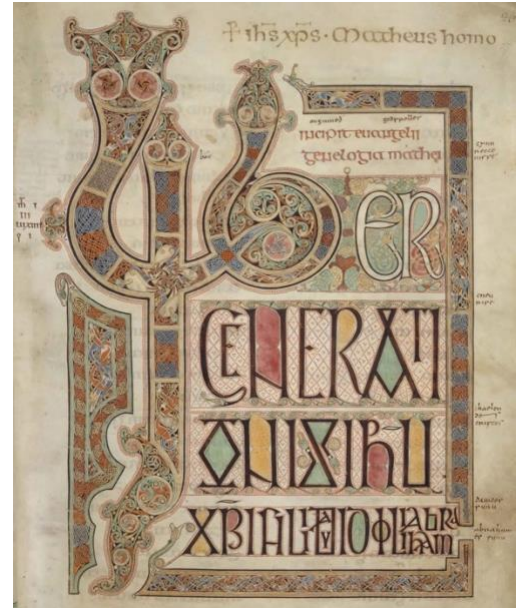 + ihs xp̄s · Mattheus homo
incipit euangelii
genelogia mathei
LIBER
GENERATI
ONIS IHU
XPI FILII DAVID FILII ABRAHAM